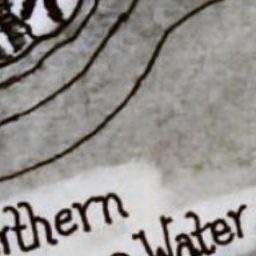 rthern
Water